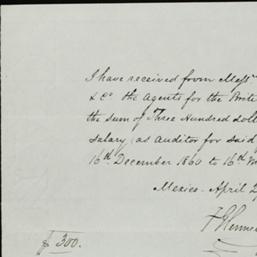 I have received from Messrs
& Co. the Agents for the
the sum of Three Hundred
salary, as Auditor for said
16th December 1860 to 16th
Mexico. April
$ 300.